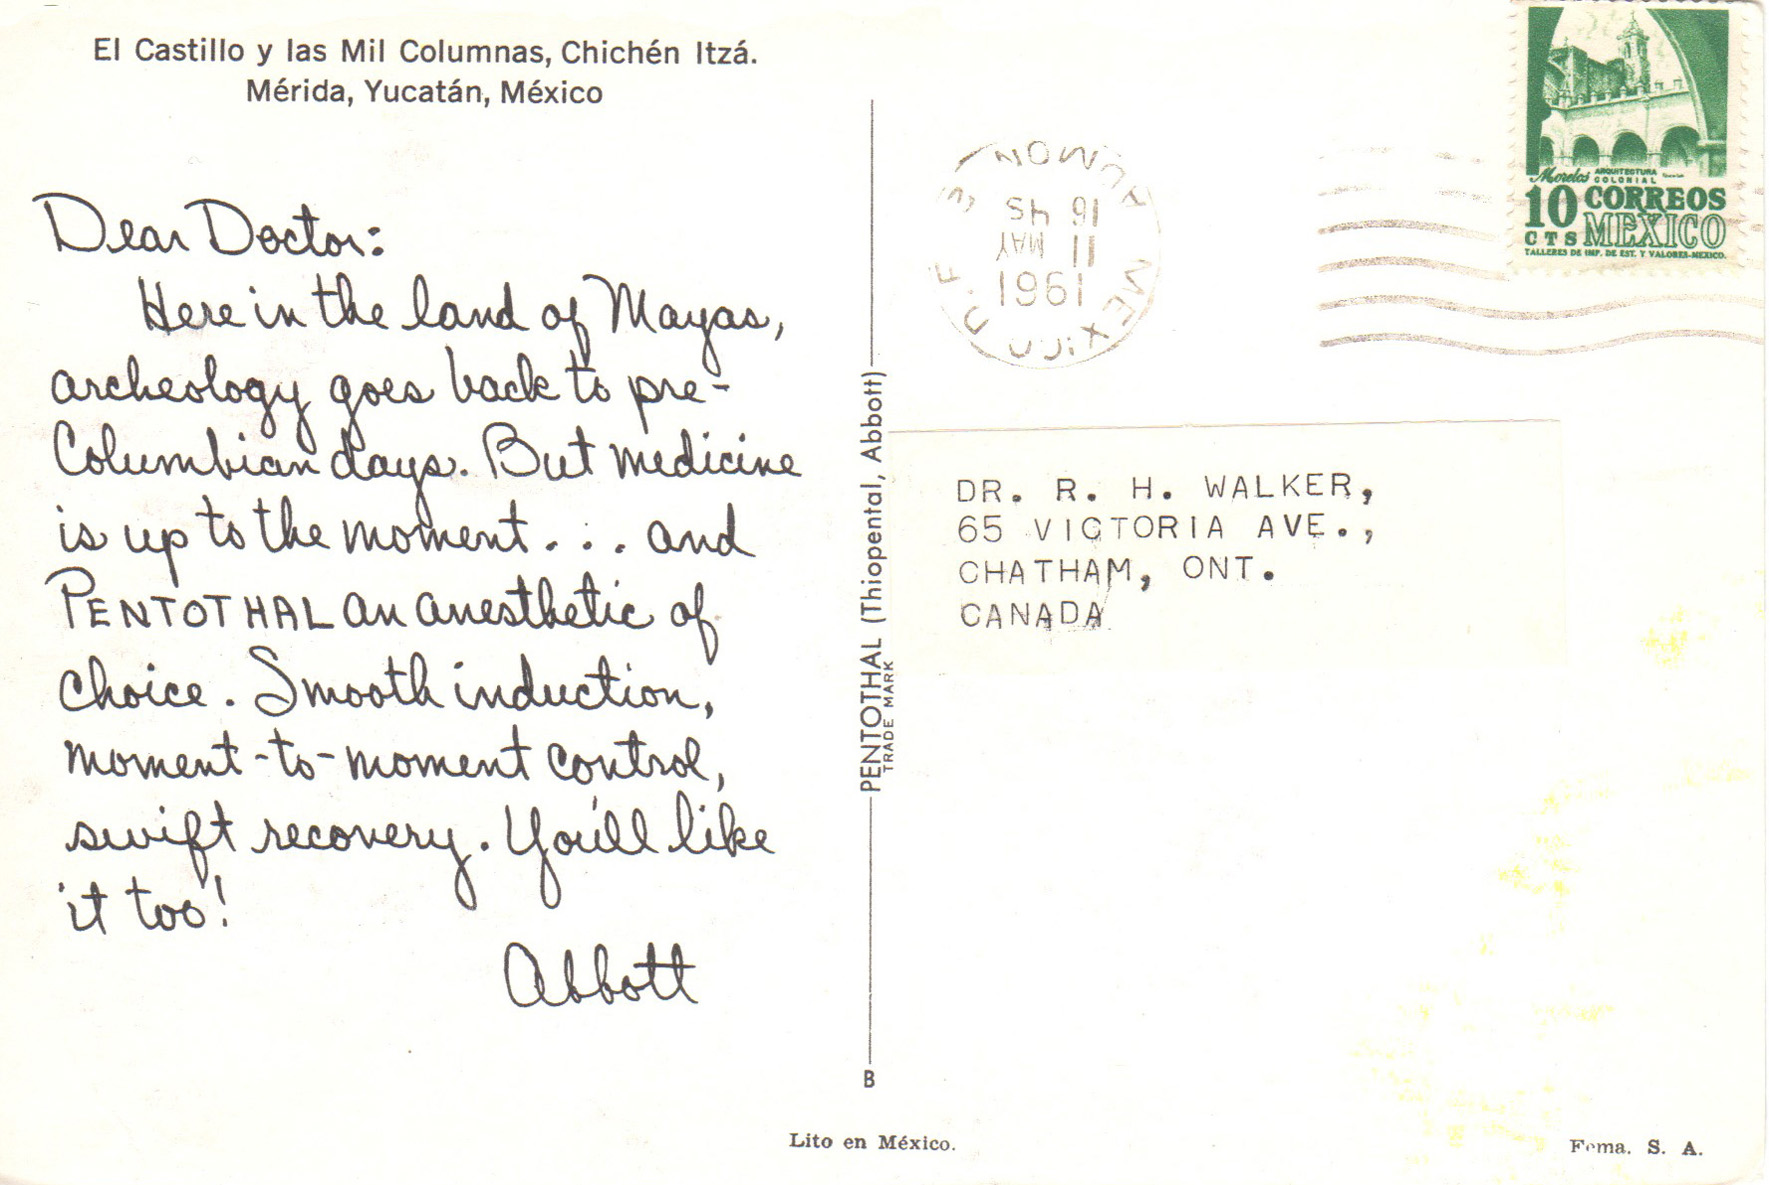 El Castillo y las Mil Columnas, Chichén Itzá.
Mérida, Yucatán, México
Dear Doctor:
Here in the land of Mayas,
archeology goes back to pre-
Columbian days. But medicine
is up to the moment . . . and
PENTOTHAL an anesthetic of
choice. Smooth induction,
moment-to-moment control,
swift recovery. You'll like
it too!
Abbott
PENTOTHAL (Thiopental, Abbott)
TRADE MARK
B
Lito en México.
16 45
11
MAY
1961
MEXICO D.F.
Morelos ARQUITECTURA
COLONIAL
10 CORREOS
CTS MEXICO
TALLERES DE IMP. DE EST. Y VALORES-MEXICO.
DR. R. H. WALKER,
65 VICTORIA AVE.,
CHATHAM, ONT.
CANADA
S. A.